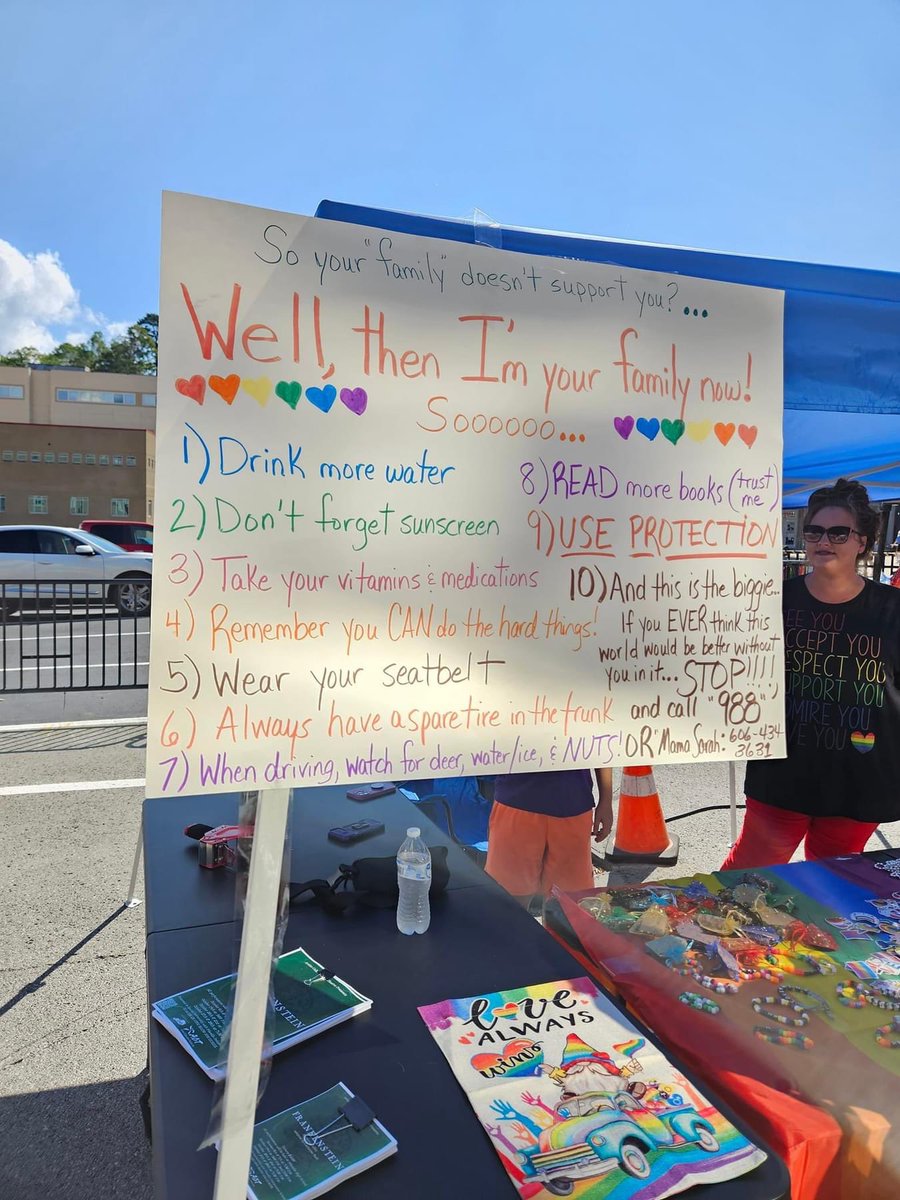 So your "family" doesn't support you?...
Well, then I'm your family now!
Sooooooo...
1) Drink more water
2) Don't forget sunscreen
3) Take your vitamins & medications
4) Remember you CAN do the hard things!
5) Wear your seatbelt
6) Always have a spare tire in the trunk
7) When driving, watch for deer, water/ice, & NUTS!
8) READ more books (trust me)
9) USE PROTECTION
10) And this is the biggie...
If you EVER think this
world would be better without
you in it... STOP!!!!
and call "988",
OR "Mama Sarah: 606-434
3631
EE YOU
CCEPT YOU
ESPECT YOU
UPPORT YOU
MIRE YOU
VE YOU
FRANKENSTEIN
FRANKENSTEIN
love
ALWAYS
wins